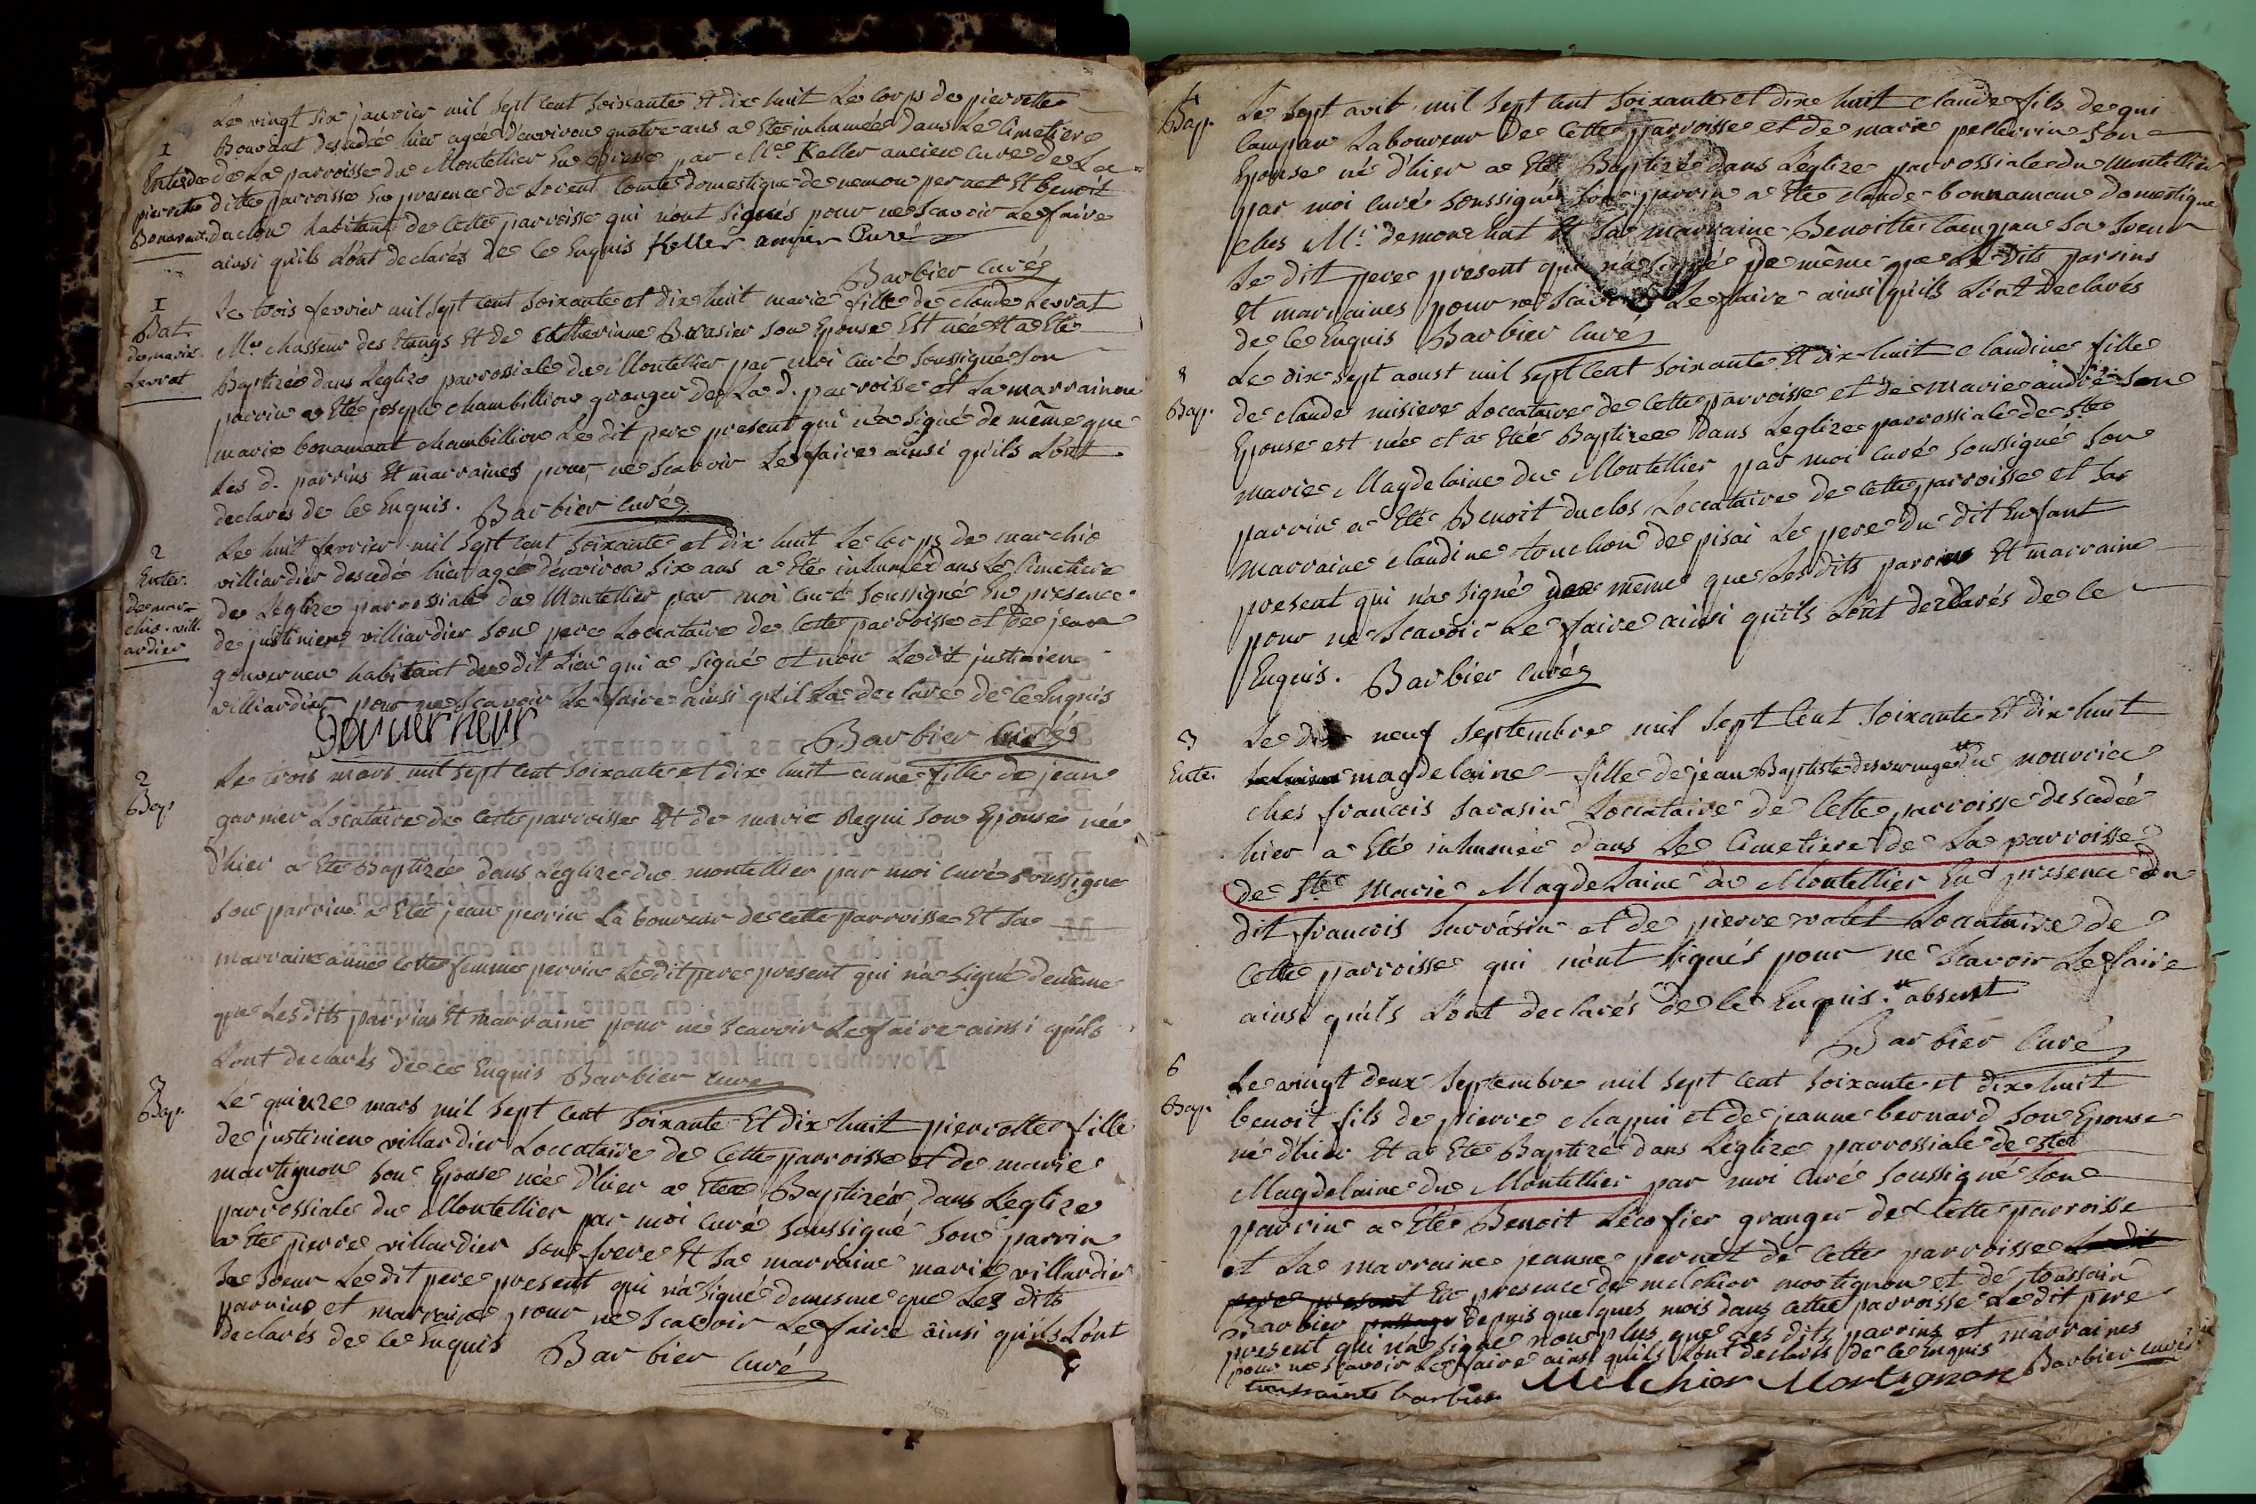 Le vingt six janvier mil sept cent soixante et dix huit Le corps de pierrette
Bonavant descedée hier agée d'environ quatre ans a Eté inhumée dans Le Cimetiere
1
Enter. de
pierrette
Bonavant.
de La parroisse du Montellier En Bresse par Mre Keller ancien Curé de La
ditte parroisse En presence de Lorent Comte domestique de pernet Et benoit
duclou habitant de Cette parroisse qui n'ont signés pour ne Scavoir Le faire
ainsi qu'ils L'ont declarés de Ce Enquis Keller ancien Curé
Barbier Curé
1
Bat.
de marie
Levrat
Le trois fevrier mil sept cent soixante et dix huit marie fille de claude Levrat
Mre chasseur des Etangs Et de Catherinne Brasier son Epouse Est née Et a Eté
Baptizée dans Leglize parrossiale du Montellier par moi Curé soussigné son
parrin a Eté joseph chambillion granger de La d. parroisse et La marrainne
marie bonamant chambillion Le dit pere present qui n'a signé de même que
Les d. parrins Et marraines pour ne Scavoir Le faire ainsi qu'ils L'ont
declarés de Ce Enquis. Barbier Curé
2
Enter.
de mar-
chie vill-
ardier
Le huit fevrier mil sept cent soixante et dix huit Le Corps de marchie
villiardier descedé hier agé d'environ six ans a Eté inhumé dans Le Cimetiere
de Leglize parrossiale du Montellier par moi Curé soussigné En presence
de justinien villiardier son pere Loccataire de Cette parroisse et de jean
gouverneur habitant du dit Lieu qui a signé et non Le dit justinien
villiardier pour ne Scavoir Le faire ainsi qu'il La declaré de Ce Enquis
Gouverneur
Barbier Curé
2
Bap.
Le trois mars mil sept cent soixante et dix huit anne fille de jean
garnier Locataire de Cette parroisse Et de marie Regni son Epouse née
d'hier a Eté Baptizée dans Leglize du montellier par moi Curé soussigné
son parrin a Eté jean perrin Laboureur de cette parroisse Et sa
marraine anne femme perrin Le dit pere present qui n'a signé de même
que Les dits parrins Et marraine pour ne Scavoir Le faire ainsi qu'ils
L'ont declarés de ce Enquis Barbier Curé
3
Bap.
Le quinze mars mil sept cent soixante Et dix huit pierrette fille
de justinien villardier Loccataire de Cette parroisse et de marie
martignon son Epouse née d'hier a Etée Baptizée dans Leglize
parrossiale du Montellier par moi Curé soussigné son parrin
a Eté pierre villardier son frere Et sa marraine marie villardier
sa soeur Le dit pere present qui n'a signé demesme que Les dits
parrins et marraine pour ne Scavoir Le faire ainsi qu'ils L'ont
declarés de Ce Enquis Barbier Curé
Bap.
Le sept avil mil sept cent soixante et dix huit claude fils de gui
Campan Laboureur de Cette parroisse et de marie pellerrin son
Epouse né d'hier a Eté Baptizé dans Leglize parrossiale du montellier
par moi Curé soussigné son parrin a Eté claude bonnamour domestique
ches Mr demonchat Et sa marraine Benoitte Campan sa soeur
Le dit pere present qui n'a signé de même que Les dits parrins
et marraines pour ne Scavoir Le faire ainsi qu'ils L'ont declarés
de Ce Enquis Barbier Curé
Bap.
Le dix sept aoust mil sept cent soixante Et dix huit claudine fille
de claude misiere Loccataire de Cette parroisse et de marie andré son
Epouse est née et a Etée Baptizee dans Leglize parrossiale de Ste
marie Magdelaine du Montellier par moi Curé soussigné son
parrin a Eté Benoit duclos Loccataire de Cette parroisse et sa
marraine claudine touchon de pisai Le pere du dit Enfant
present qui n'a signé de même que Les dits parrins Et marraine
pour ne Scavoir Le faire ainsi qu'ils L'ont declarés de Ce
Enquis. Barbier Curé
3
Ente.
Le dix neuf septembre mil sept Cent soixante Et dix huit
magdelaine fille de jean Baptiste du nouvrie
ches francois sarasin Loccataire de Cette parroisse descedée
hier a Eté inhumée dans Le Cimetiere de La parroisse
de Ste Marie Magdelaine du Montellier En presence du
dit francois sarrasin et de pierre valet Locataire de
Cette parroisse qui n'ont signés pour ne Scavoir Le faire
ainsi qu'ils L'ont declarés de Ce Enquis. absent
Barbier Curé
6
Bap.
Le vingt deux septembre mil sept Cent soixante et dix huit
benoit fils de pierre chapui et de jeanne bernard son Epouse
né d'hier Et a Eté Baptizé dans Leglize parrossiale de Ste
Magdelaine du Montellier par moi Curé soussigné son
parrin a Eté Benoit Lecofier granger de Cette parroisse
et La marraine jeanne pernet de Cette parroisse Le dit
pere present En presence de melchior mortignon et de toussain
Barbier depuis quelques mois dans Cette parroisse Le dit pere
present qui n'a signé non plus que Les dits parrins et marraines
pour ne Scavoir Le faire ainsi qu'ils L'ont declarés de Ce Enquis
toussainte barbier Melchior Mortignon Barbier Curé